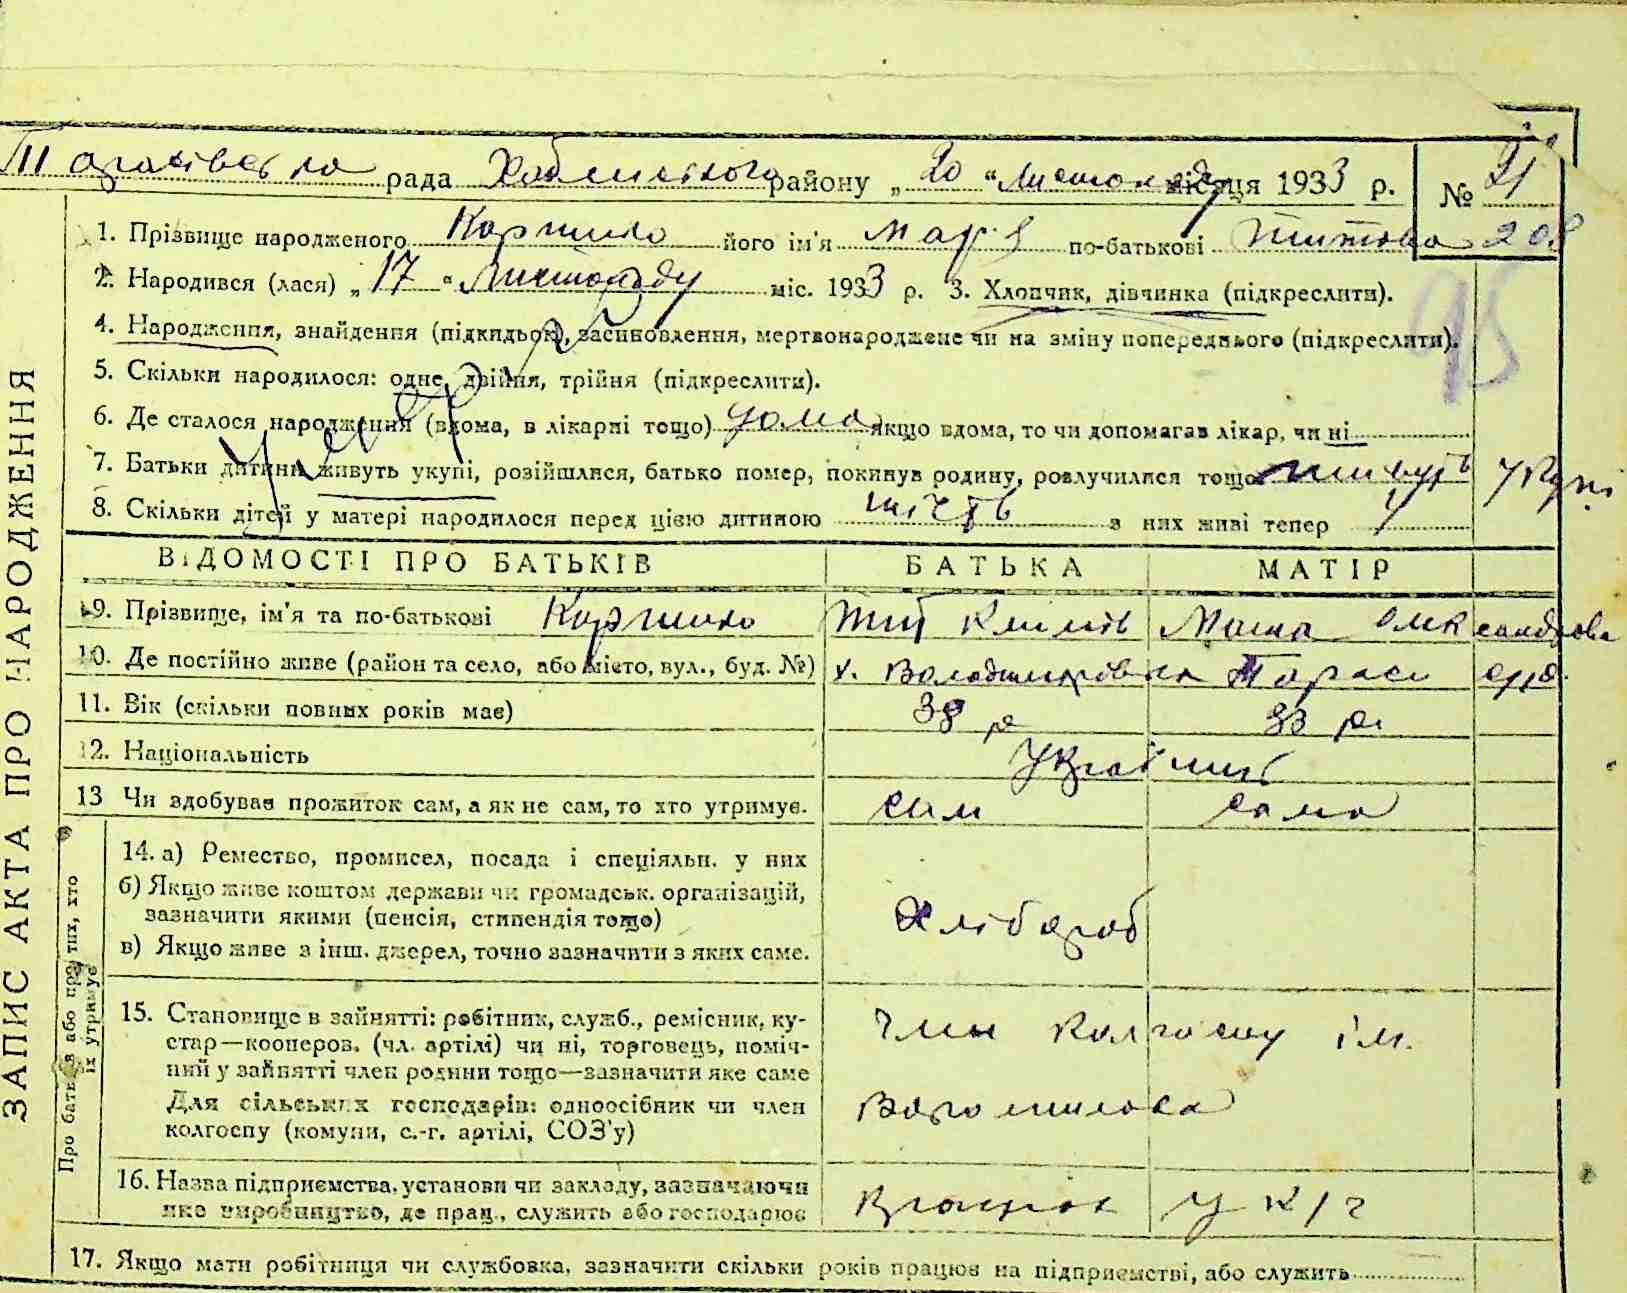 рада Хабенського району „20“ Листопаду місяця 1933 р. № 21
1. Прізвище народженого Коржино його ім'я Марія по-батькові Титова 208
2. Народився (лася) „17“ Листопаду міс. 1933 р. 3. Хлопчик, дівчинка (підкреслити).
95
4. Народження, знайдення (підкидьок), засиновлення, мертвонароджене чи на зміну попереднього (підкреслити).
5. Скільки народилося: одне, двійня, трійня (підкреслити).
6. Де сталося народження (вдома, в лікарні тощо) дома якщо вдома, то чи допомагав лікар, чи ні
7. Батьки дитини живуть укупі, розійшлися, батько помер, покинув родину, розлучилися тощо живуть укупі
8. Скільки дітей у матері народилося перед цією дитиною шість з них живі тепер
ВІДОМОСТІ ПРО БАТЬКІВ БАТЬКА МАТІР
9. Прізвище, ім'я та по-батькові Коржино Тит Климів Маша Олександрова
10. Де постійно живе (район та село, або місто, вул., буд. №) х. Володимирівка
11. Вік (скільки повних років має) 38 р 33 р.
12. Національність Українці
13 Чи здобував прожиток сам, а як не сам, то хто утримує. сам сама
14. а) Ремество, промисел, посада і спеціяльн. у них
б) Якщо живе коштом держави чи громадськ. організацій,
зазначити якими (пенсія, стипендія тощо) Хлібороб
в) Якщо живе з інш. джерел, точно зазначити з яких саме.
15. Становище в зайнятті: робітник, служб., ремісник, ку-
стар—коопероз. (чл. артілі) чи ні, торговець, поміч- член колгоспу ім.
ний у зайнятті член родини тощо—зазначити яке саме
Для сільських господарів: одноосібник чи член Ворошилова
колгоспу (комуни, с.-г. артілі, СОЗ'у)
16. Назва підприємства, установи чи закладу, зазначаючи
яке виробництво, де прац., служить або господарює Працює у к/г
17. Якщо мати робітниця чи службовка, зазначити скільки років працює на підприємстві, або служить
ЗАПИС АКТА ПРО НАРОДЖЕННЯ
Про батьків або про тих, хто
їх утримує